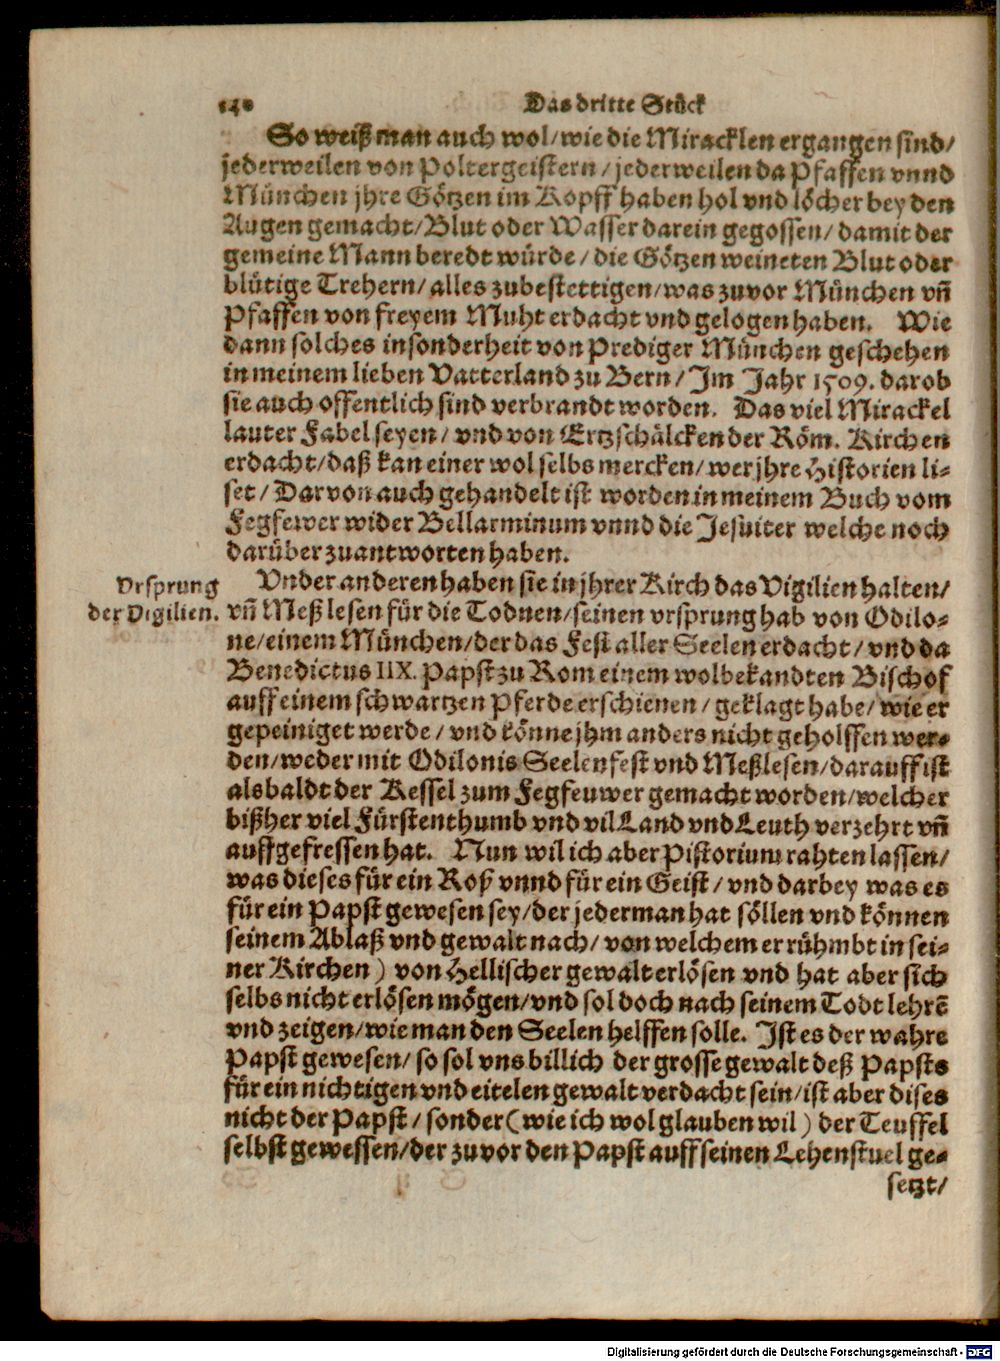 140 Das dritte Stück
So weiß man auch wol/wie die Miracklen ergangen sind/
jederweilen von Poltergeistern/jederweilen da Pfaffen vnnd
München jhre Götzen im Kopff haben hol vnd löcher bey den
Augen gemacht/Blut oder Wasser darein gegossen/damit der
gemeine Mann beredt würde/die Götzen weineten Blut oder
blütige Trehern/alles zubestettigen/was zuvor München vñ
Pfaffen von freyem Muht erdacht vnd gelogen haben. Wie
dann solches insonderheit von Prediger München geschehen
in meinem lieben Vatterland zu Bern/Im Jahr 1509. darob
sie auch offentlich sind verbrandt worden. Das viel Mirackel
lauter Fabel seyen/vnd von Ertzschälcken der Röm. Kirchen
erdacht/daß kan einer wol selbs mercken/wer jhre Historien li-
set/Darvon auch gehandelt ist worden in meinem Buch vom
Fegfewer wider Bellarminum vnnd die Jesuiter welche noch
darüber zuantworten haben.
Vrsprung
der Vigilien.
Vnder anderen haben sie in jhrer Kirch das Vigilien halten/
vñ Meß lesen für die Todnen/seinen vrsprung hab von Odilo-
ne/einem München/der das Fest aller Seelen erdacht/vnd da
Benedictus IIX. Papst zu Rom einem wolbekandten Bischof
auff einem schwartzen Pferde erschienen/geklagt habe/wie er
gepeiniget werde/vnd könne jhm anders nicht geholffen wer-
den/weder mit Odilonis Seelenfest vnd Meßlesen/darauff ist
alsbaldt der Kessel zum Fegfeuwer gemacht worden/welcher
bißher viel Fürstenthumb vnd vil Land vnd Leuth verzehrt vñ
auffgefressen hat. Nun wil ich aber Pistorium rahten lassen/
was dieses für ein Roß vnnd für ein Geist/vnd darbey was es
für ein Papst gewesen sey/der jederman hat söllen vnd können
seinem Ablaß vnd gewalt nach/von welchem er rühmbt in sei-
ner Kirchen) von Hellischer gewalt erlösen vnd hat aber sich
selbs nicht erlösen mögen/vnd sol doch nach seinem Todt lehrē
vnd zeigen/wie man den Seelen helffen solle. Ist es der wahre
Papst gewesen/so sol vns billich der grosse gewalt deß Papsts
für ein nichtigen vnd eitelen gewalt verdacht sein/ist aber dises
nicht der Papst/sonder (wie ich wol glauben wil) der Teuffel
selbst gewessen/der zuvor den Papst auff seinen Lehenstuel ge-
setzt/
Digitalisierung gefördert durch die Deutsche Forschungsgemeinschaft - DFG